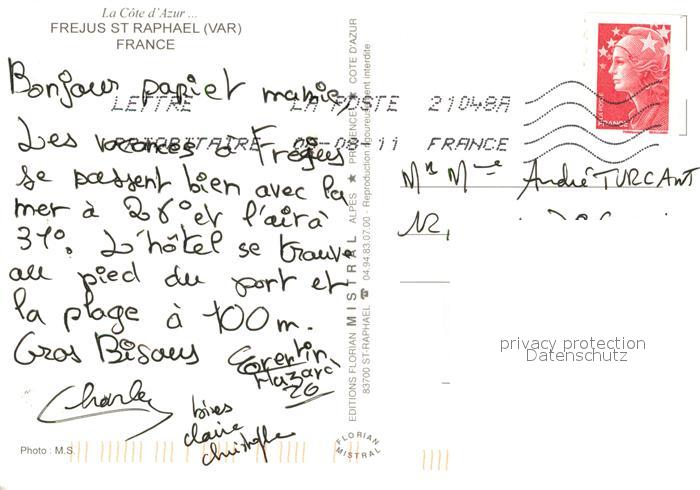 La Côte d'Azur ...
FREJUS ST RAPHAEL (VAR)
FRANCE
Bonjour papi et mamie,
Les vacances à Fréjus
se passent bien avec la
mer à 26° et l'air à
31°. L'hôtel se trouve
au pied du port et
la plage à 100 m.
Gros Bisous
Corentin
Mazard
26
Charley
bises
claire
christophe
Photo : M.S.
LETTRE LA POSTE 21048A
PRIORITAIRE 05-08-11 FRANCE
EDITIONS FLORIAN MISTRAL ALPES ★ PROVENCE ★ COTE D'AZUR
83700 ST-RAPHAEL ☎ 04.94.83.07.00 - Reproduction rigoureusement interdite
FLORIAN
MISTRAL
FRANCE
Mr Mme André TURCANT
12,
privacy protection
Datenschutz